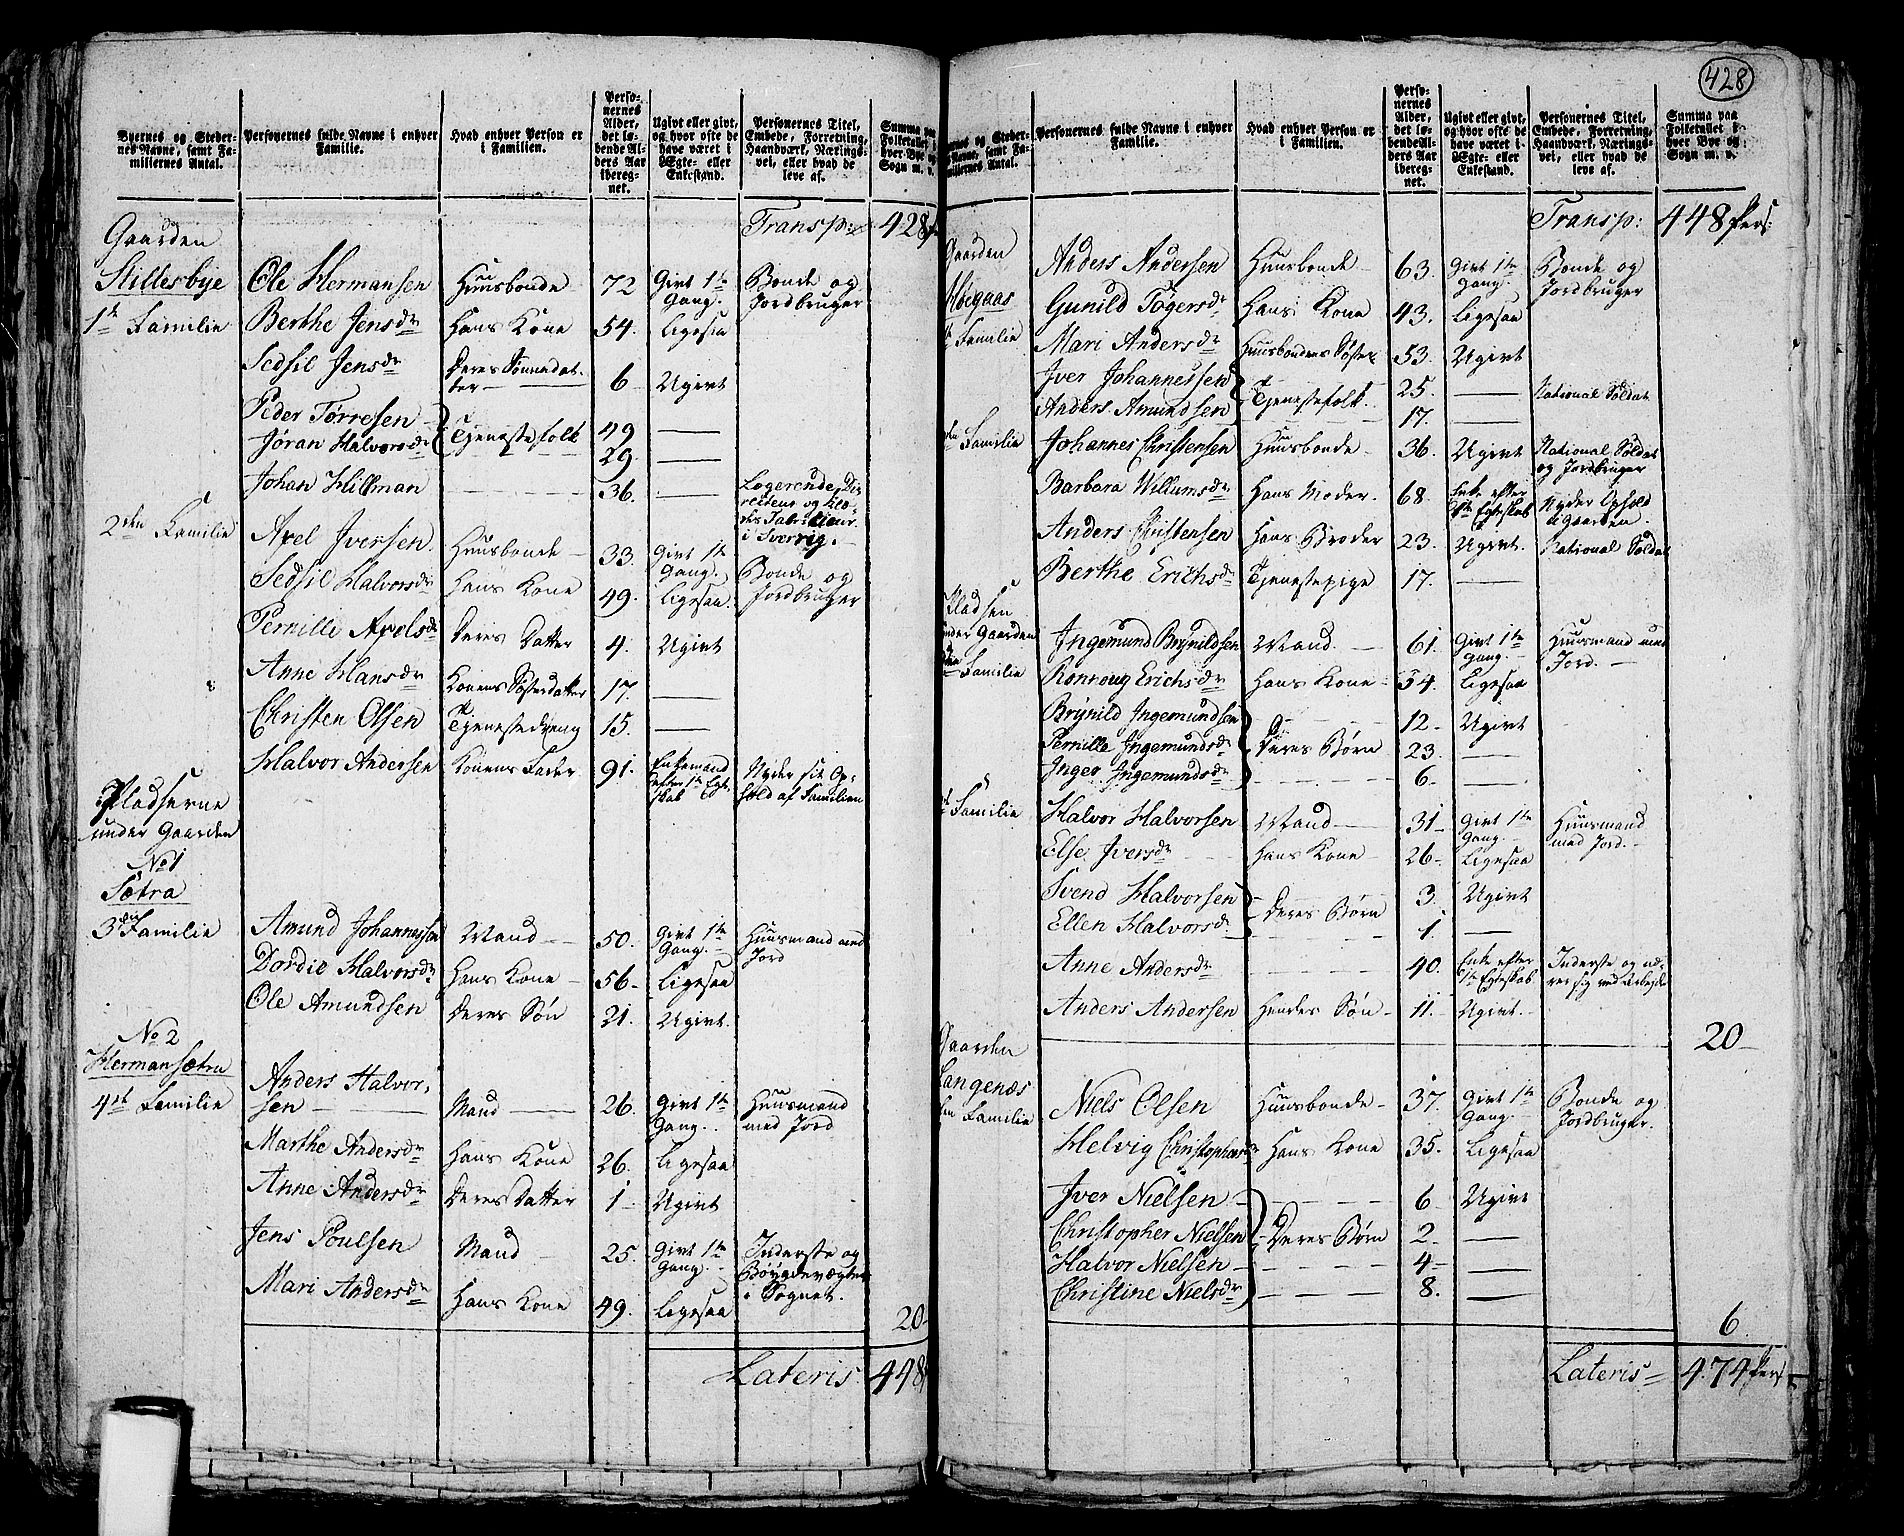 428
Byernes og Steder-
nes Navne, samt Fa-
miliernes Antal.
Personernes fulde Navne i enhver
Familie.
Hvad enhver Person er
i Familien.
Perso-
nernes
Alder,
det lø-
bende Al-
ders Aar
iberegnet.
Ugivt eller givt,
og hvor ofte de
have været i
Ægte- eller
Enkestand.
Personernes Titel,
Embede, Forretning,
Haandværk, Nærings-
vei, eller hvad de
leve af.
Summa paa
Folketallet i
hver Bye og
Sogn m. v.
Transp: 428
Gaarden
Stillesbye Ole Hermansen Huusbonde 72 Givt 1te Gang. Bonde og Jordbruger
1te Familie Berthe Jensdr Hans Kone 54. ligesaa
Sedsil Jensdr Deres Sønnedatter 6 Ugivt
Peder Torresen Tjenestefolk 49 —
Joran Halvorsdr 29 —
Johan Hillman 36. — Logerende
i Sverrig.
2den Familie Axel Iversen Huusbonde 33. Givt 1te Gang. Bonde og Jordbruger
Sedsil Halvorsdr Hans Kone 49. ligesaa
Pernille Axelsdr Deres Datter 4. Ugivt
Anne Hansdr Konens Søsterdatter 17. —
Christen Olsen Tjenestedreng 15. —
Halvor Andersen Konens Fader 91. Enkemand efter 1te Egteskab Nyder sit Ophold af Familien
Pladserne
under Gaarden
No 1
Sætra
3die Familie Amund Johannessen Mand 50. Givt 1te Gang. Huusmand med Jord
Dordie Halvorsdr Hans Kone 56 ligesaa
Ole Amundsen Deres Søn 21. Ugivt.
No 2
Hermansætra
4de Familie Anders Halvor-
sen Mand 26. Givt 1te Gang. Huusmand med Jord
Marthe Andersdr Hans Kone 26. ligesaa
Anne Andersdr Deres Datter 1 Ugivt
Jens Poulsen Mand 25. Givt 1te Gang. Inderste og Bøygdevægter i Sognet.
Mari Andersdr Hans Kone 49. ligesaa
20
Lateris 448
Byernes og Steder-
nes Navne, samt Fa-
miliernes Antal.
Personernes fulde Navne i enhver
Familie.
Hvad enhver Person er
i Familien.
Perso-
nernes
Alder,
det lø-
bende Al-
ders Aar
iberegnet.
Ugivt eller givt,
og hvor ofte de
have været i
Ægte- eller
Enkestand.
Personernes Titel,
Embede, Forretning,
Haandværk, Nærings-
vei, eller hvad de
leve af.
Summa paa
Folketallet i
hver Bye og
Sogn m. v.
Transp: 448 Pers:
Gaarden
Anders Andersen Huusbonde 63. Givt 1te Gang. Bonde og Jordbruger
Gunild Togersdr Hans Kone 43. ligesaa
Familie Mari Andersdr Huusbondens Søster 53. Ugivt
Iver Johannessen Tjenestefolk 25. — National Soldat
Anders Amundsen 17. —
Familie Johannes Christensen Huusbonde 36. Ugivt National Soldat og Jordbruger
Barbara Willumsdr Hans Moder. 68. Enke efter 1te Egteskab Nyder Ophold
Anders Christensen Hans Broder 23. Ugivt. National Soldat
Berthe Erichsdr Tjenestepige 17. —
Pladsen
under Gaarden
Familie Ingemund Brynildsen Mand 61. Givt 1te Gang. Huusmand med Jord.
Ronnoug Erichsdr Hans Kone 54. ligesaa
Brynild Ingemundsen 12 Ugivt
Pernille Ingemundsdr Deres Børn 23. —
Inger Ingemundsdr 6 —
Familie Halvor Halvorsen Mand 31 Givt 1te Gang. Huusmand med Jord.
Else Iversdr Hans Kone 26 ligesaa
Svend Halvorsen Deres Børn 3. Ugivt
Ellen Halvorsdr 1. —
Anne Andersdr 40. Enke efter 1te Egteskab Inderste og nærer sig ved Arbejde
Anders Andersen Hendes Søn 11. Ugivt.
20
Gaarden
Langenæs
Familie Niels Olsen Huusbonde 37. Givt 1te Gang. Bonde og Jordbruger.
Helvig Christophersdr Hans Kone 35. ligesaa
Iver Nielsen 6 Ugivt
Christopher Nielsen Deres Børn 2 —
Halvor Nielsen 4 —
Christine Nielsdr 8. —
6
Lateris 474 Pers